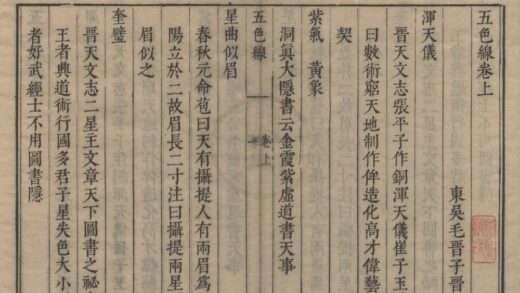 五色線卷上
東吳毛晉子晉
渾天儀
晉天文志張平子作銅渾天儀崔子玉
曰數術窮天地制作侔造化高才偉藝
契
紫氣 黃象
洞真大隱書云金霞紫虛道書天事
五色線 卷上 一
星曲似眉
春秋元命苞曰天有攝提人有兩眉為
陽立於二故眉長二寸注曰攝提兩星
眉似之
奎璧
晉天文志二星主文章天下圖書之祕
王者興道術行國多君子星失色大小
者好武經士不用圖書隱